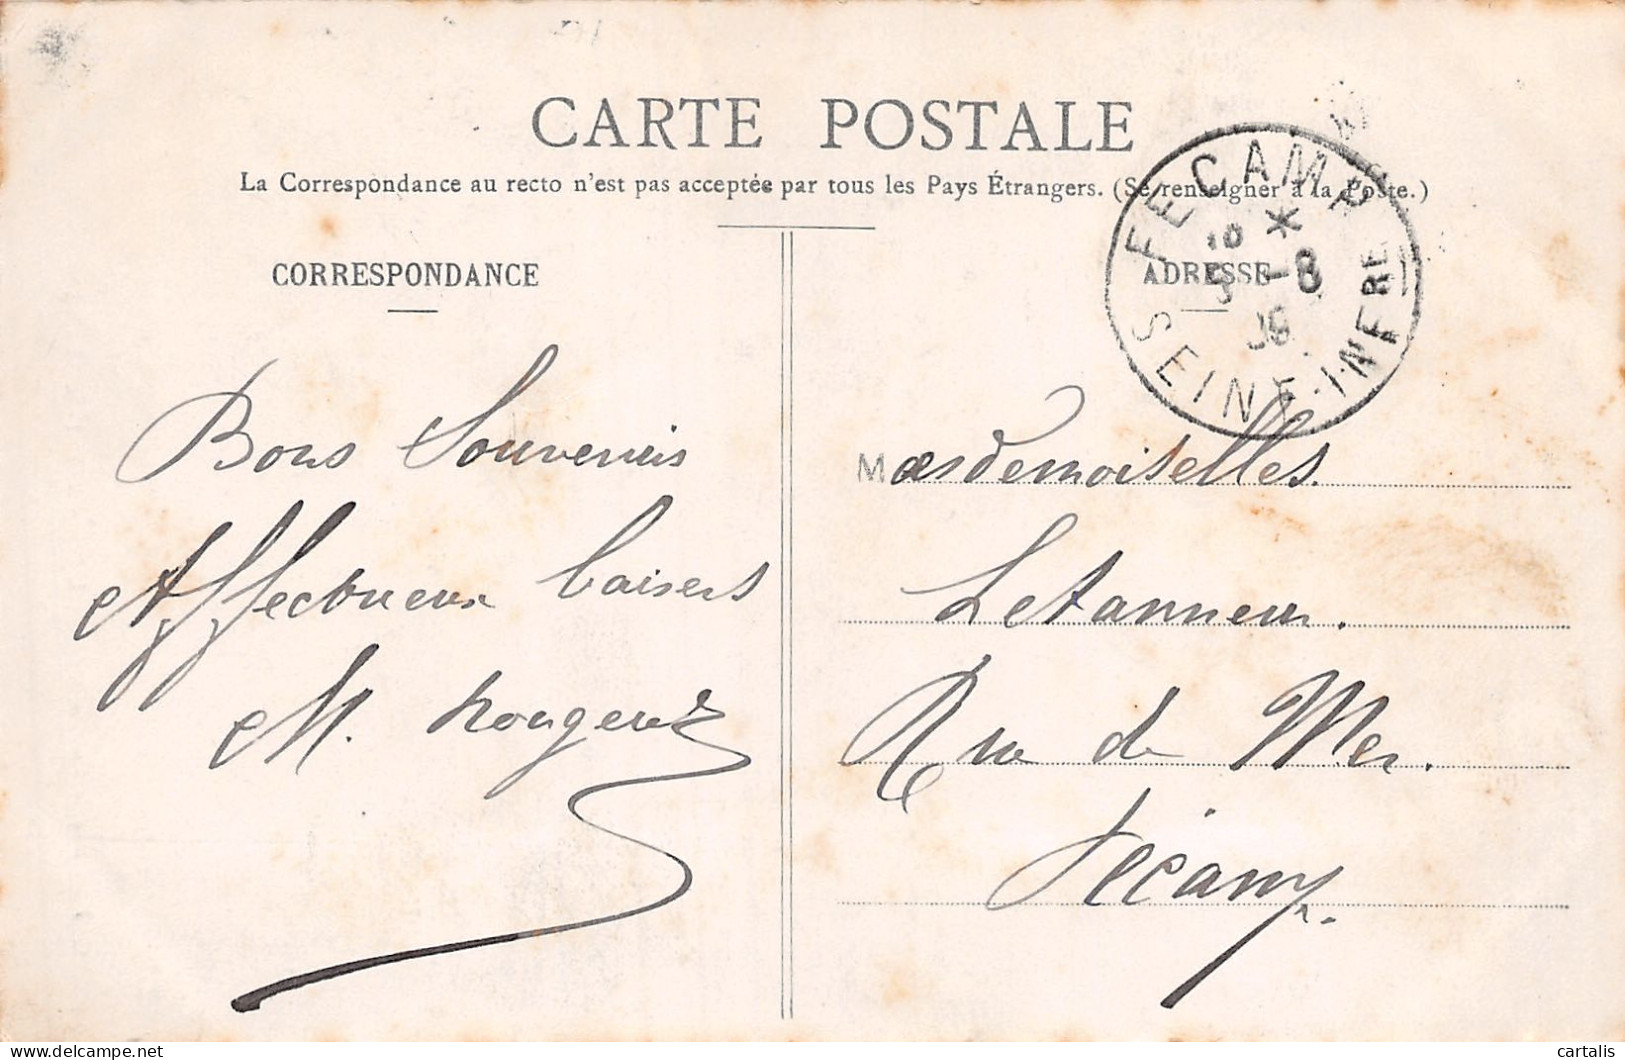 CARTE POSTALE
La Correspondance au recto n'est pas acceptée par tous les Pays Étrangers. (Se renseigner à la Poste.)
CORRESPONDANCE
ADRESSE
FECAMP
5 -8
SEINE-INFRE
Bons Souvenirs
Affectueux baisers
M.
Mesdemoiselles.
Letanneur.
Rue de Mer.
Fécamp.
delcampe.net
cartalis